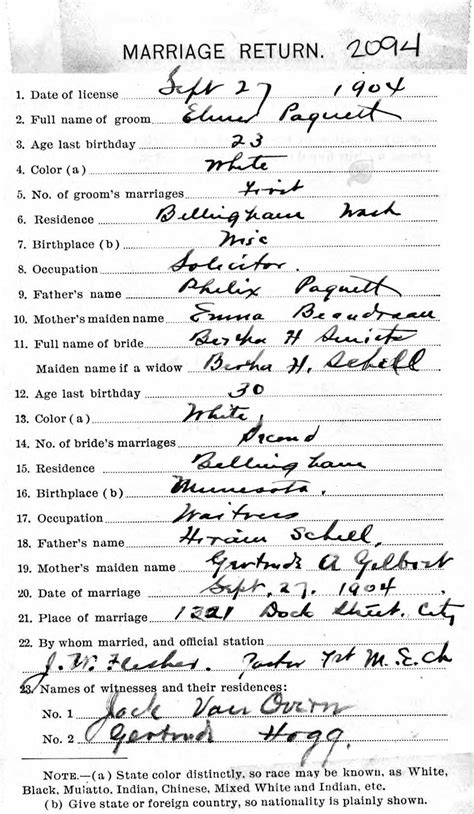 MARRIAGE RETURN. 2094
1. Date of license Sept 27 1904
2. Full name of groom Elmer Paquett
3. Age last birthday 23
4. Color (a) White
5. No. of groom's marriages First
6. Residence Bellingham Wash
7. Birthplace (b) Wisc
8. Occupation Solicitor.
9. Father's name Philix Paquett
10. Mother's maiden name Emma
11. Full name of bride Bertha H
Maiden name if a widow Bertha H. Schell
12. Age last birthday 30
13. Color (a) White,
14. No. of bride's marriages Second
15. Residence Bellingham
16. Birthplace (b) Minnesota.
17. Occupation Waitress
18. Father's name Hiram Schell,
19. Mother's maiden name Gertrude A Gilbert
20. Date of marriage Sept. 27. 1904
21. Place of marriage 1221 Dock Street. City
22. By whom married, and official station
J. W. Flesher. Pastor 1st M. E. ch
23. Names of witnesses and their residences:
No. 1 Jack Van Overn
No. 2 Gertrude Hogg.
NOTE.—(a) State color distinctly, so race may be known, as White,
Black, Mulatto, Indian, Chinese, Mixed White and Indian, etc.
(b) Give state or foreign country, so nationality is plainly shown.